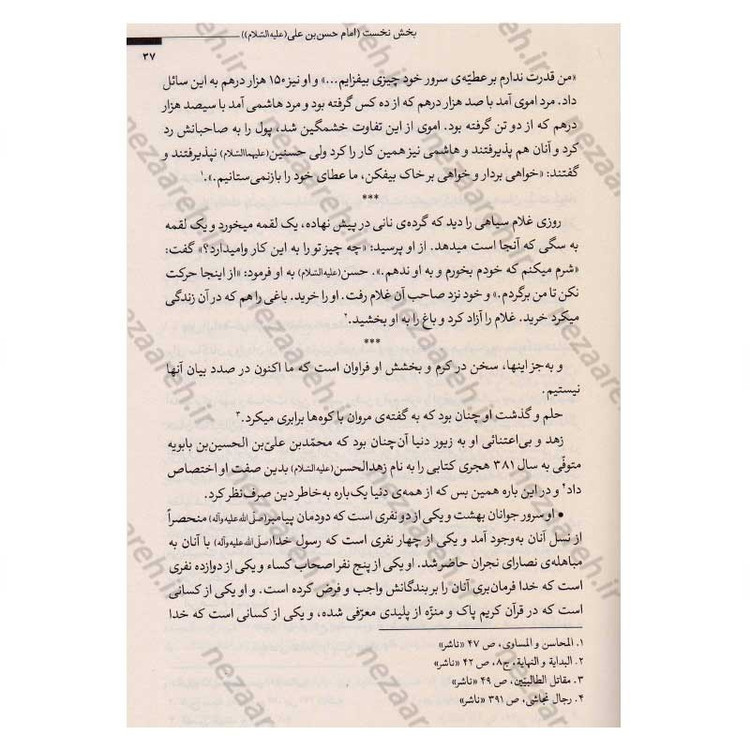 بخش نخست (امام حسن‌بن علی (علیه‌السّلام))
۳۷
«من قدرت ندارم بر عطیّه‌ی سرور خود چیزی بیفزایم...» و او نیز ۱۵۰ هزار درهم به این سائل
داد. مرد اموی آمد با صد هزار درهم که از ده کس گرفته بود و مرد هاشمی آمد با سیصد هزار
درهم که از دو تن گرفته بود. اموی از این تفاوت خشمگین شد، پول را به صاحبانش رد
کرد و آنان هم پذیرفتند و هاشمی نیز همین کار را کرد ولی حسنین (علیهماالسّلام) نپذیرفتند و
گفتند: «خواهی بردار و خواهی بر خاک بیفکن، ما عطای خود را بازنمی‌ستانیم.».۱
***
روزی غلام سیاهی را دید که گرده‌ی نانی در پیش نهاده، یک لقمه میخورد و یک لقمه
به سگی که آنجا است میدهد. از او پرسید: «چه چیز تو را به این کار وامیدارد؟» گفت:
«شرم میکنم که خودم بخورم و به او ندهم.». حسن (علیه‌السّلام) به او فرمود: «از اینجا حرکت
نکن تا من برگردم.» و خود نزد صاحب آن غلام رفت. او را خرید. باغی را هم که در آن زندگی
میکرد خرید. غلام را آزاد کرد و باغ را به او بخشید.۲
***
و به‌جز اینها، سخن در کرم و بخشش او فراوان است که ما اکنون در صدد بیان آنها
نیستیم.
حلم و گذشت او چنان بود که به گفته‌ی مروان با کوه‌ها برابری میکرد.۳
زهد و بی‌اعتنائی او به زیور دنیا آن‌چنان بود که محمّدبن علیّ‌بن الحسین‌بن بابویه
متوفّی به سال ۳۸۱ هجری کتابی را به نام زهدالحسن (علیه‌السّلام) بدین صفت او اختصاص
داد۴ و در این باره همین بس که از همه‌ی دنیا یک‌باره به‌خاطر دین صرف‌نظر کرد.
• او سرور جوانان بهشت و یکی از دو نفری است که دودمان پیامبر (صلّی‌الله‌علیه‌وآله) منحصراً
از نسل آنان به‌وجود آمد و یکی از چهار نفری است که رسول خدا (صلّی‌الله‌علیه‌وآله) با آنان به
مباهله‌ی نصارای نجران حاضر شد. او یکی از پنج نفر اصحاب کساء و یکی از دوازده نفری
است که خدا فرمان‌بری آنان را بر بندگانش واجب و فرض کرده است. و او یکی از کسانی
است که در قرآن کریم پاک و منزّه از پلیدی معرّفی شده، و یکی از کسانی است که خدا
۱. المحاسن و المساوی، ص ۴۷ «ناشر»
۲. البدایة و النهایة، ج۸، ص ۴۲ «ناشر»
۳. مقاتل الطالبیّین، ص ۴۹ «ناشر»
۴. رجال نجاشی، ص ۳۹۱ «ناشر»
nezaareh.ir